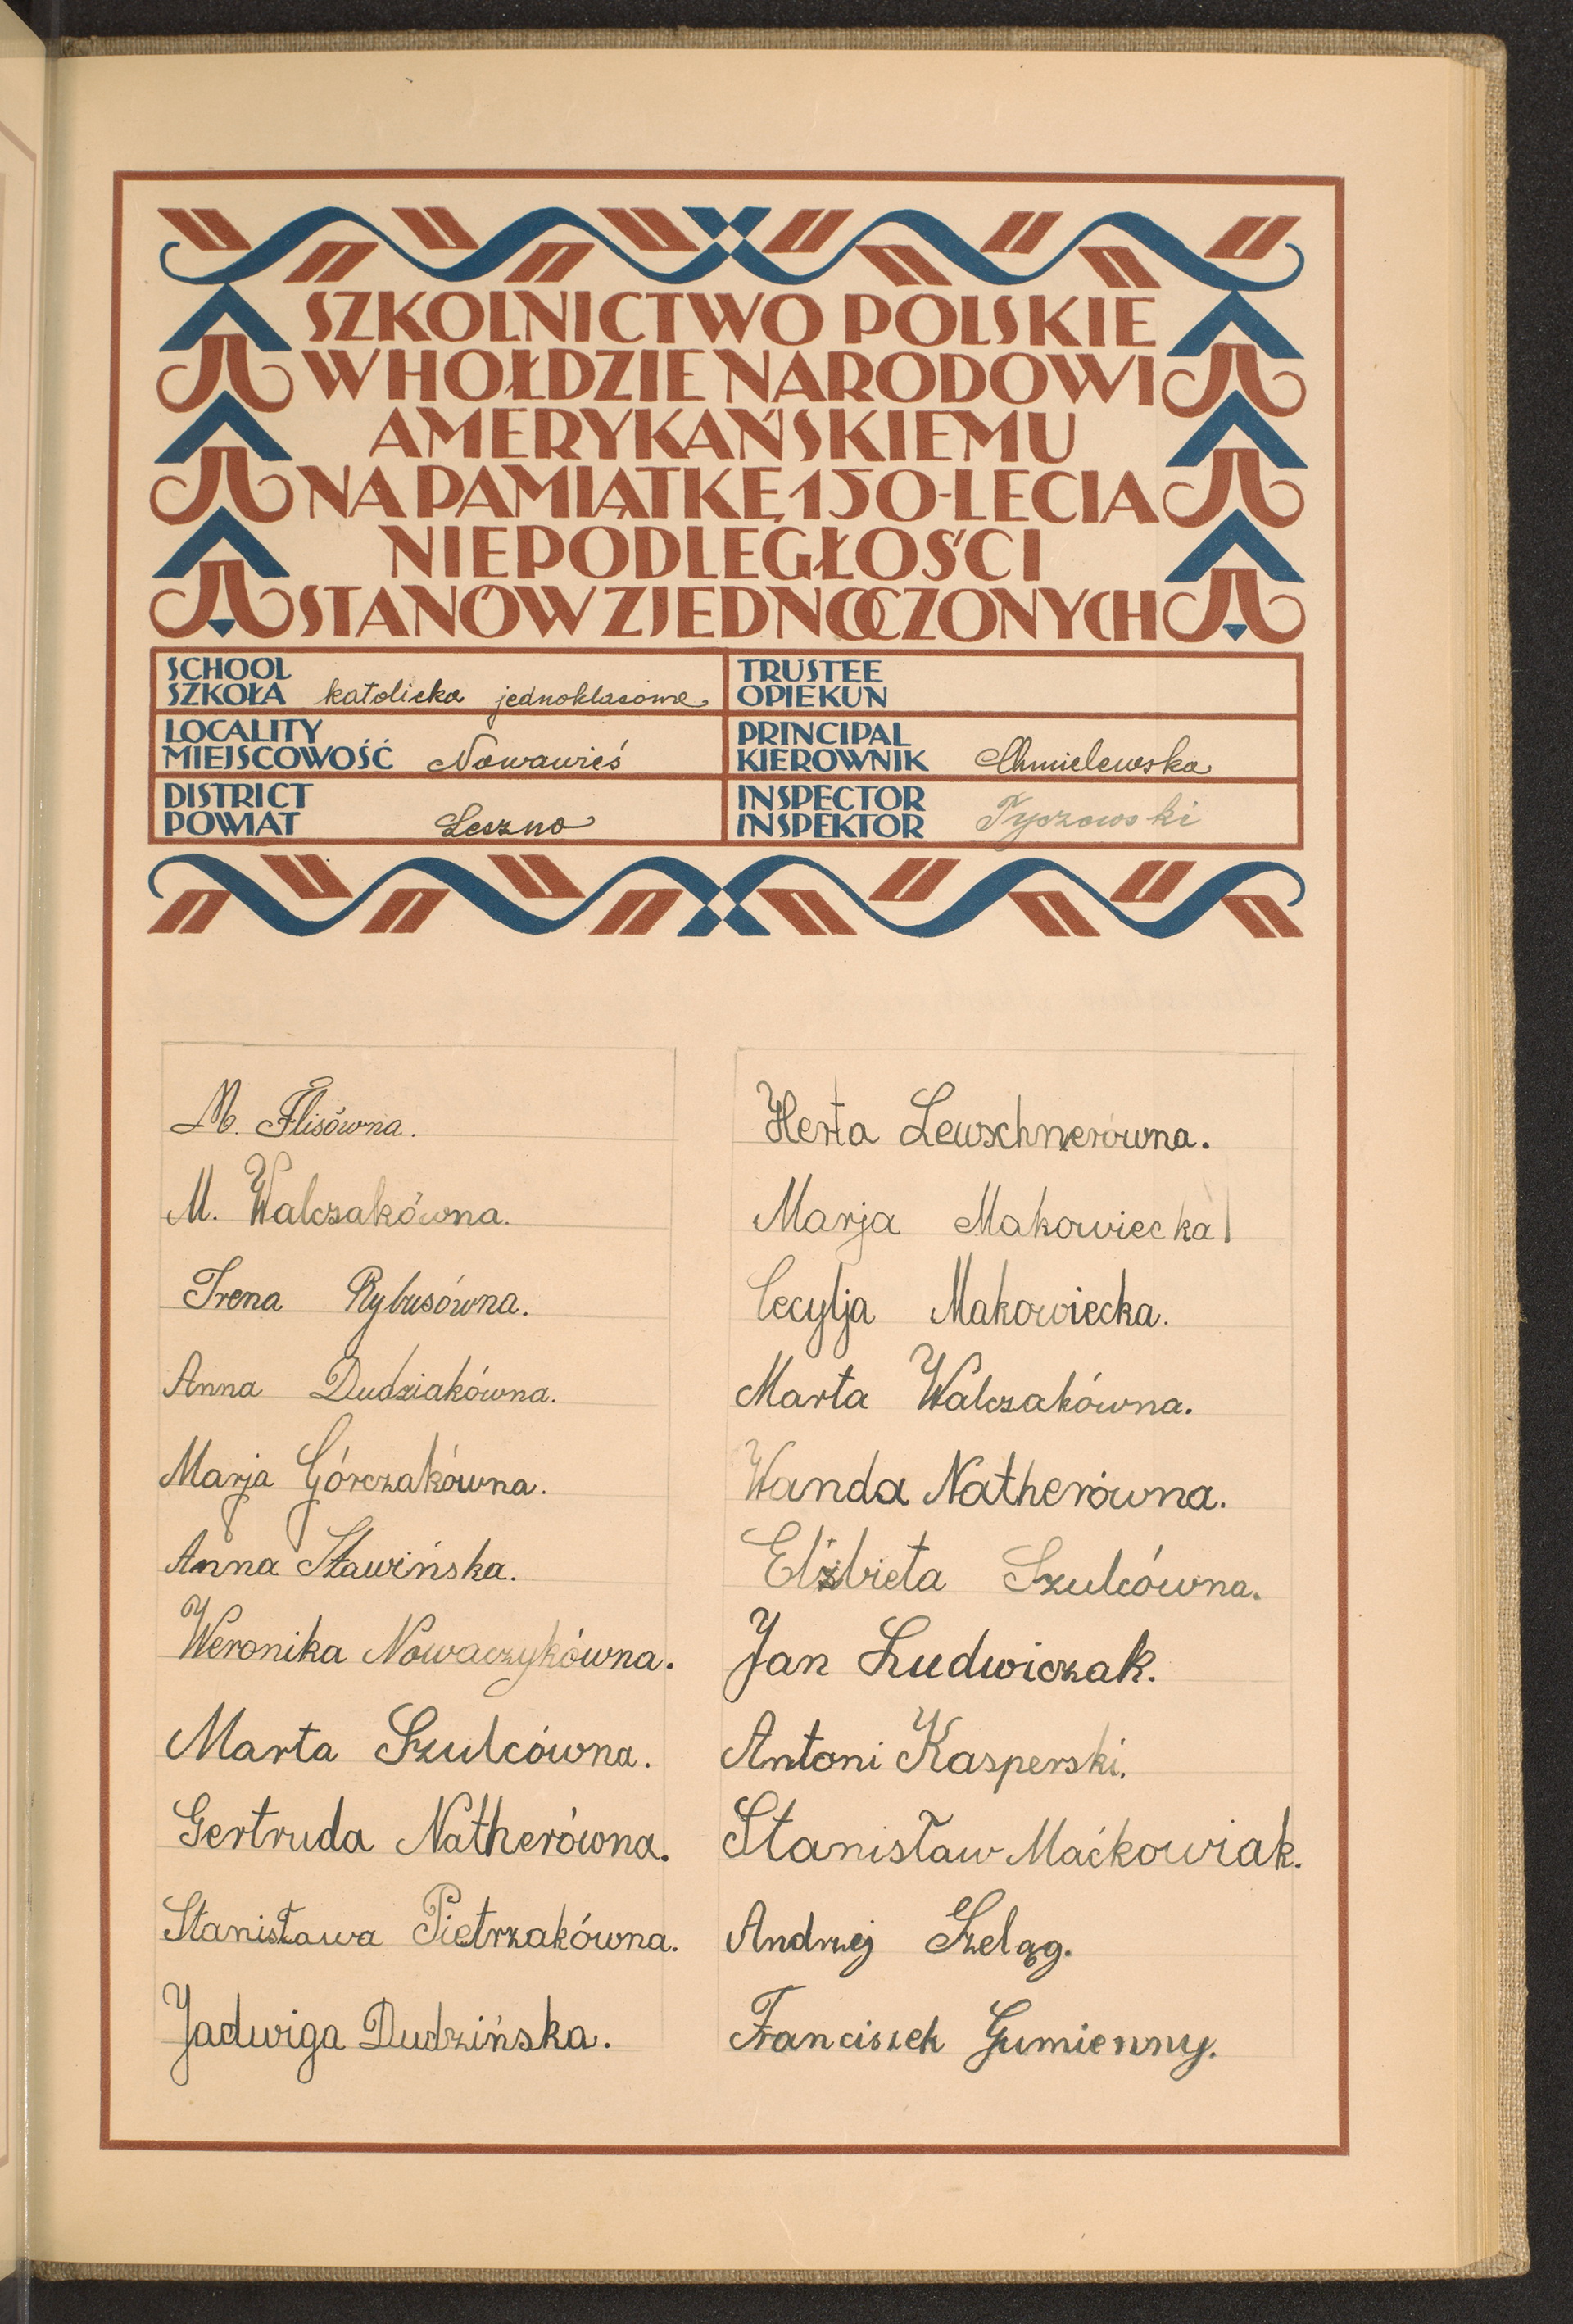 SZKOLNICTWO POLSKIE
W HOŁDZIE NARODOWI
AMERYKAŃSKIEMU
NA PAMIĄTKĘ 150-LECIA
NIEPODLEGŁOŚCI
STANÓW ZJEDNOCZONYCH
SCHOOL
SZKOŁA katolicka jednoklasowa
TRUSTEE
OPIEKUN
LOCALITY
MIEJSCOWOŚĆ Nowawieś
PRINCIPAL
KIEROWNIK Chmielewska
DISTRICT
POWIAT Leszno
INSPECTOR
INSPEKTOR Tyczowski
M. Flisówna.
M. Walczakówna.
Irena Rybusówna.
Anna Dudziakówna.
Marja Górczakówna.
Anna Sławińska.
Weronika Nowaczykówna.
Marta Szulcówna.
Gertruda Natherówna.
Stanisława Pietrzakówna.
Jadwiga Dudzińska.
Herta Lewschnerówna.
Marja Makowiecka
Cecylja Makowiecka.
Marta Walczakówna.
Wanda Natherówna.
Elżbieta Szulcówna.
Jan Ludwiczak.
Antoni Kasperski.
Stanisław Maćkowiak.
Andrzej Szeląg.
Franciszek Gumienny.